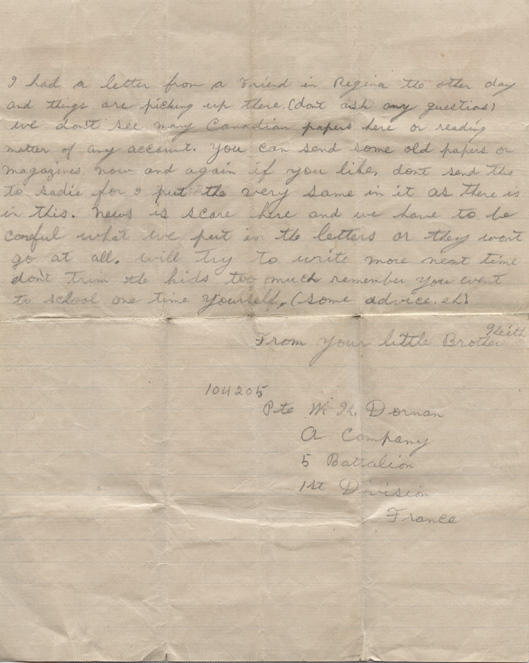 I had a letter from a Friend in Regina the other day
and things are picking up there. (dont ask any questions)
we don't see many Canadian papers here or reading
matter of any account. You can send some old papers or
magazines now and again if you like, dont send the
to sadie for I put the very same in it as there is
in this. News is scare here and we have to be
careful what we put in the letters or they wont
go at all. will try to write more next time
don't trim the kids too much remember you went
to school one time yourself. (some advice. eh)
From your little Brother Keith
104205
Pte W. K. Dornan
A Company
5 Battalion
1st Division
France